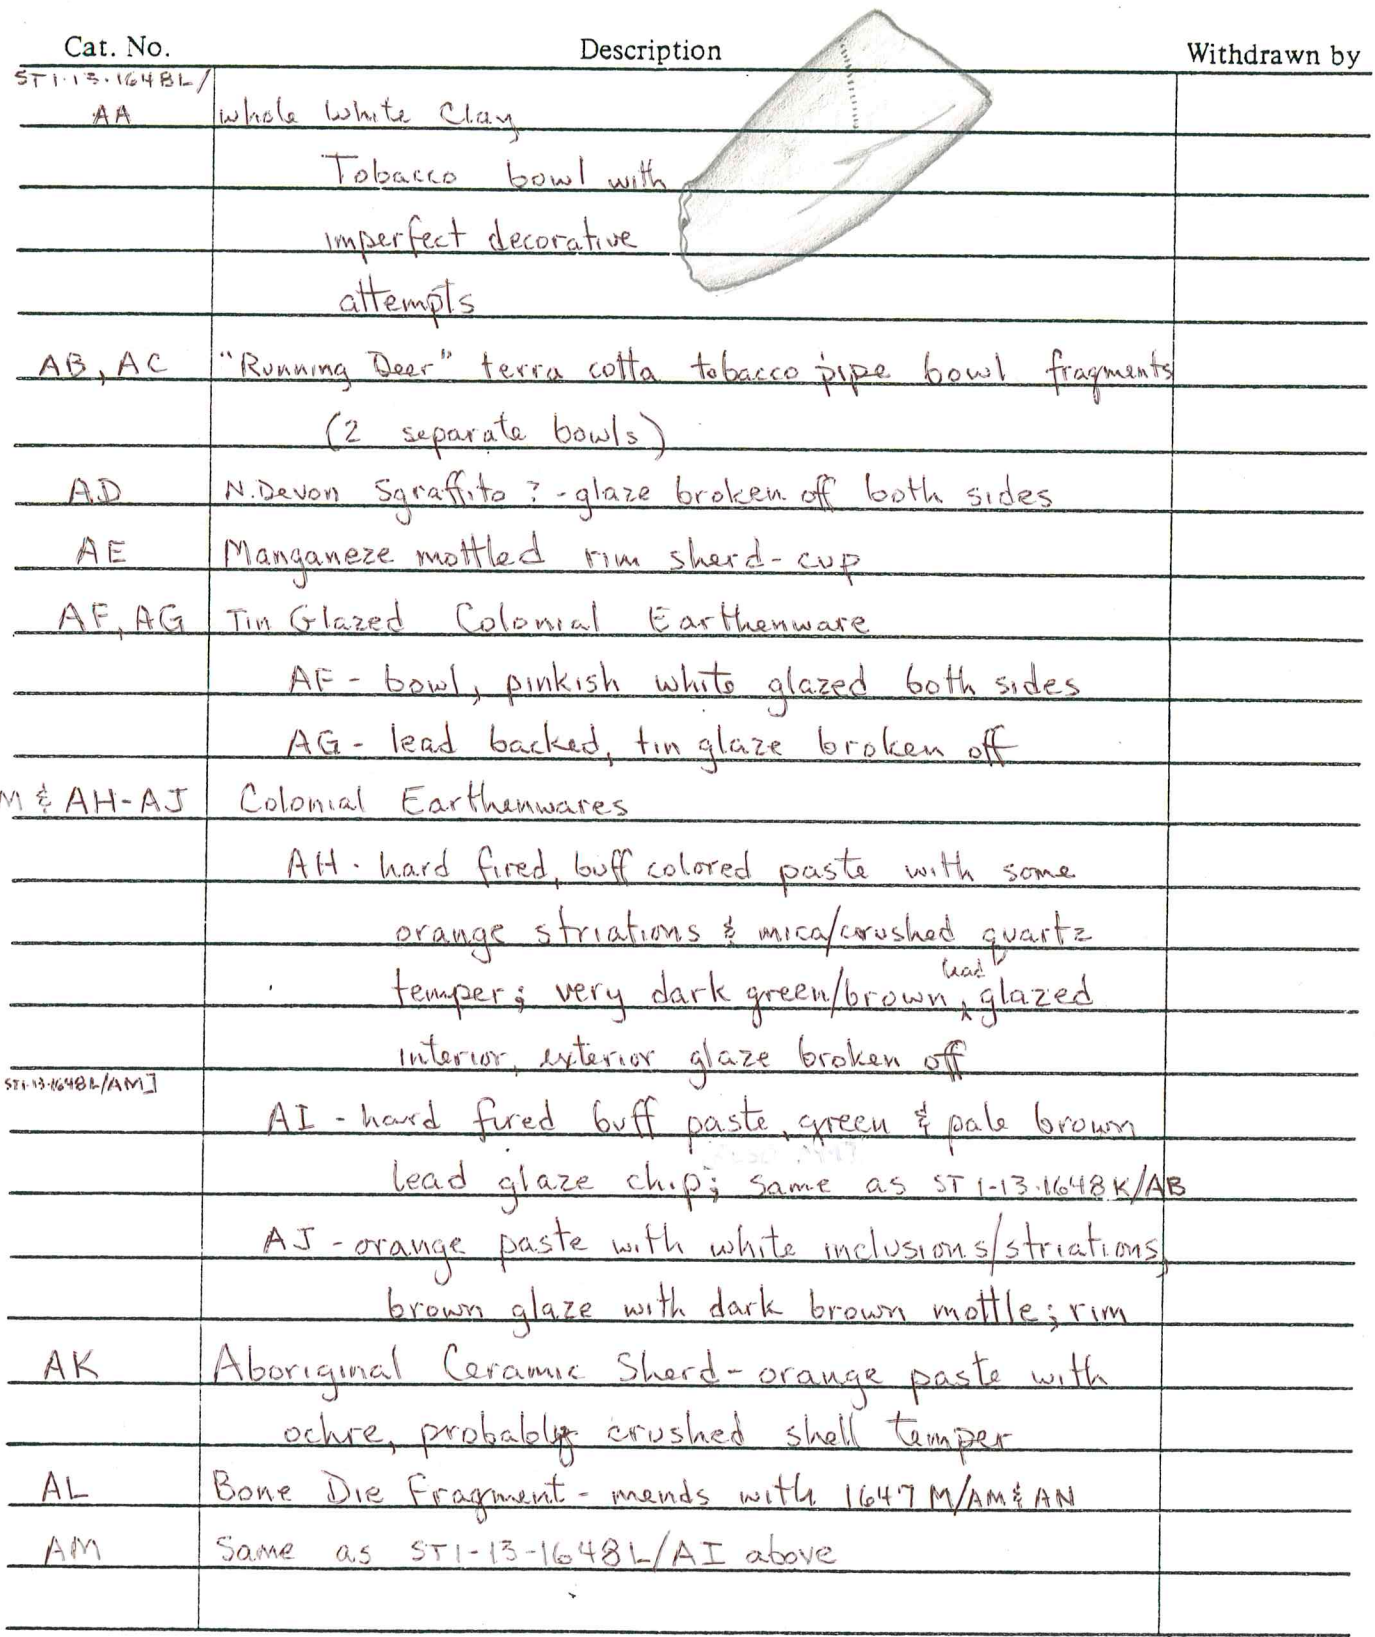 Cat. No. Description Withdrawn by
ST1-13-1648L/
AA whole white Clay
Tobacco bowl with
imperfect decorative
attempts
AB, AC "Running Deer" terra cotta tobacco pipe bowl fragments
(2 separate bowls)
AD N.Devon Sgraffito? - glaze broken off both sides
AE Manganeze mottled rim sherd - cup
AF, AG Tin Glazed Colonial Earthenware
AF - bowl, pinkish white glazed both sides
AG - lead backed, tin glaze broken off
M & AH-AJ Colonial Earthenwares
AH - hard fired, buff colored paste with some
orange striations & mica/crushed quartz
temper; very dark green/brown lead glazed
interior, exterior glaze broken off
ST1-13-1648L/AM]
AI - hard fired buff paste, green & pale brown
lead glaze chip; same as ST 1-13-1648K/AB
AJ - orange paste with white inclusions/striations,
brown glaze with dark brown mottle; rim
AK Aboriginal Ceramic Sherd - orange paste with
ochre, probably crushed shell temper
AL Bone Die Fragment - mends with 1647M/AM & AN
AM Same as ST1-13-1648L/AI above